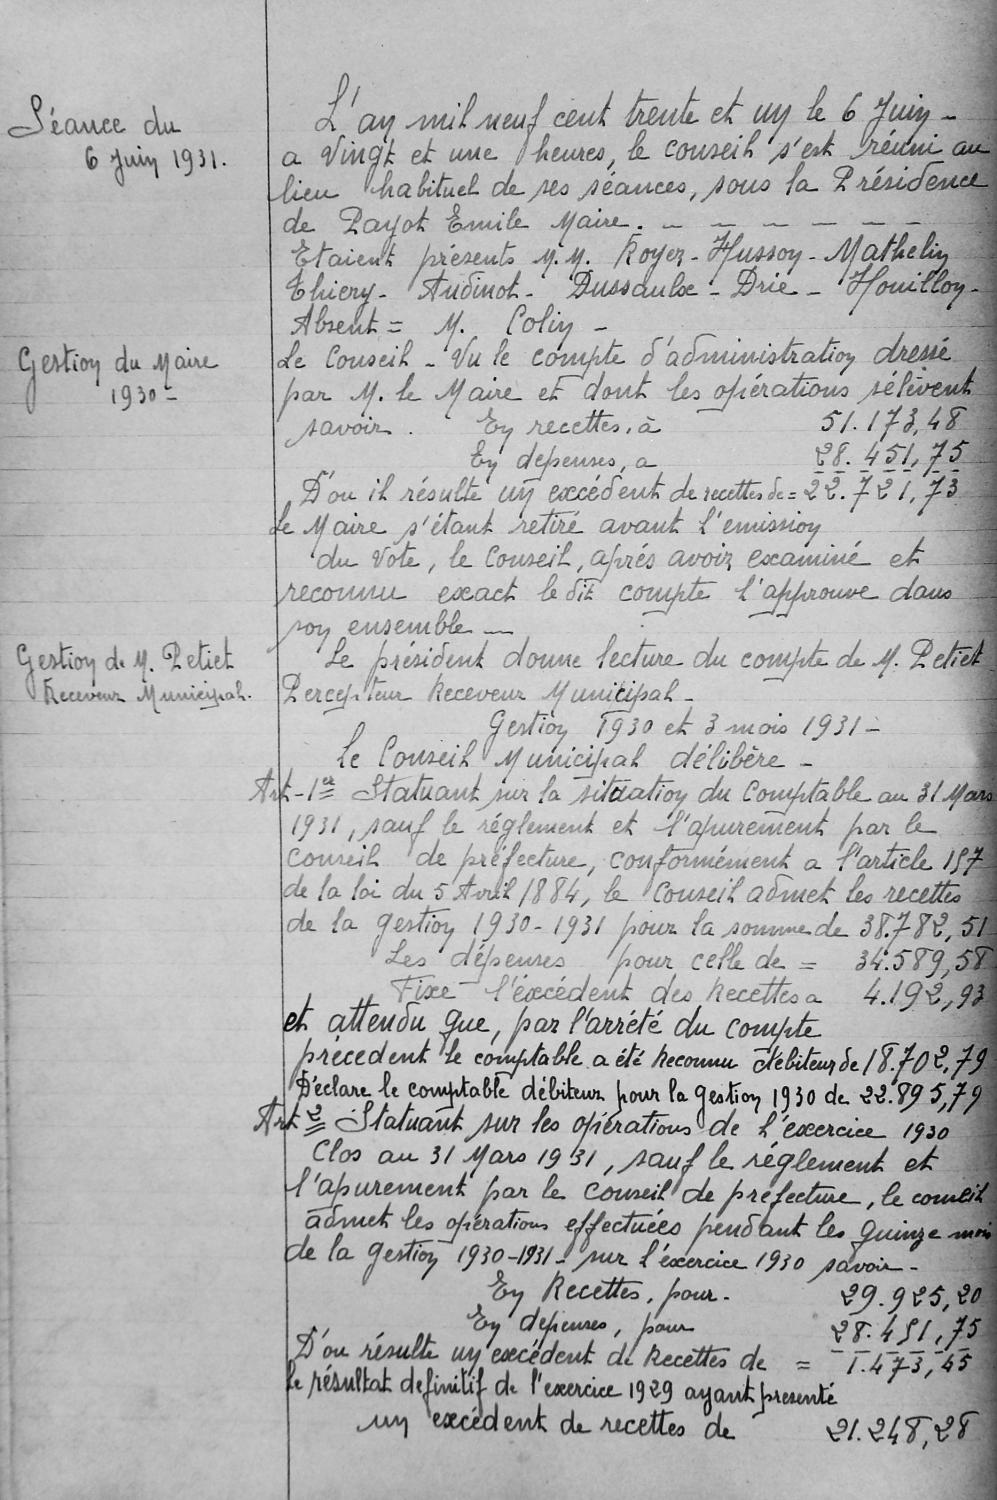 Séance du
6 Juin 1931.
L'an mil neuf cent trente et un le 6 Juin -
a Vingt et une heures, le conseil s'est réuni au
lieu habituel de ses séances, sous la Présidence
de Payot Emile Maire. - - - - - -
Etaient présents M.M. Royer - Husson - Mathelin
Thiery - Audinot - Dussaulx - Drie - Houillon -
Absent = M. Colin -
Gestion du Maire
1930 =
Le Conseil - Vu le compte d'administration dressé
par M. le Maire et dont les opérations sélèvent
savoir. En recettes, à 51.173,48
En dépenses, a 28.451,75
D'ou il résulte un excédent de recettes de = 22.721,73
Le Maire s'étant retiré avant l'emission
du Vote, le Conseil, aprés avoir examiné et
reconnu exact le dit compte l'approuve dans
son ensemble -
Gestion de M. Petiet
Receveur Municipal.
Le président donne lecture du compte de M. Petiet
Percepteur Receveur Municipal -
Gestion 1930 et 3 mois 1931 -
Le Conseil Municipal délibère -
Art - 1er Statuant sur la situation du Comptable au 31 Mars
1931, sauf le réglement et l'apurement par le
conseil de préfecture, conformément a l'article 157
de la loi du 5 Avril 1884, le Conseil admet les recettes
de la gestion 1930-1931 pour la somme de 38.782,51
Les dépenses pour celle de = 34.589,58
Fixe l'éxcédent des Recettes a 4.192,93
et attendu que, par l'arrété du compte
précedent le comptable a été Reconnu débiteur de 18.702,79
Déclare le comptable débiteur pour la gestion 1930 de 22.895,79
Art 2 Statuant sur les opérations de l'éxercice 1930
Clos au 31 Mars 1931, sauf le réglement et
l'apurement par le Conseil de préfecture, le conseil
admet les opérations effectuées pendant les quinze mois
de la gestion 1930-1931 - sur l'éxercice 1930 savoir -
En Recettes, pour - 29.925,20
En dépenses, pour 28.451,75
D'ou résulte un excédent de Recettes de = 1.473,45
le résultat definitif de l'exercice 1929 ayant presenté
un excédent de recettes de 21.248,28